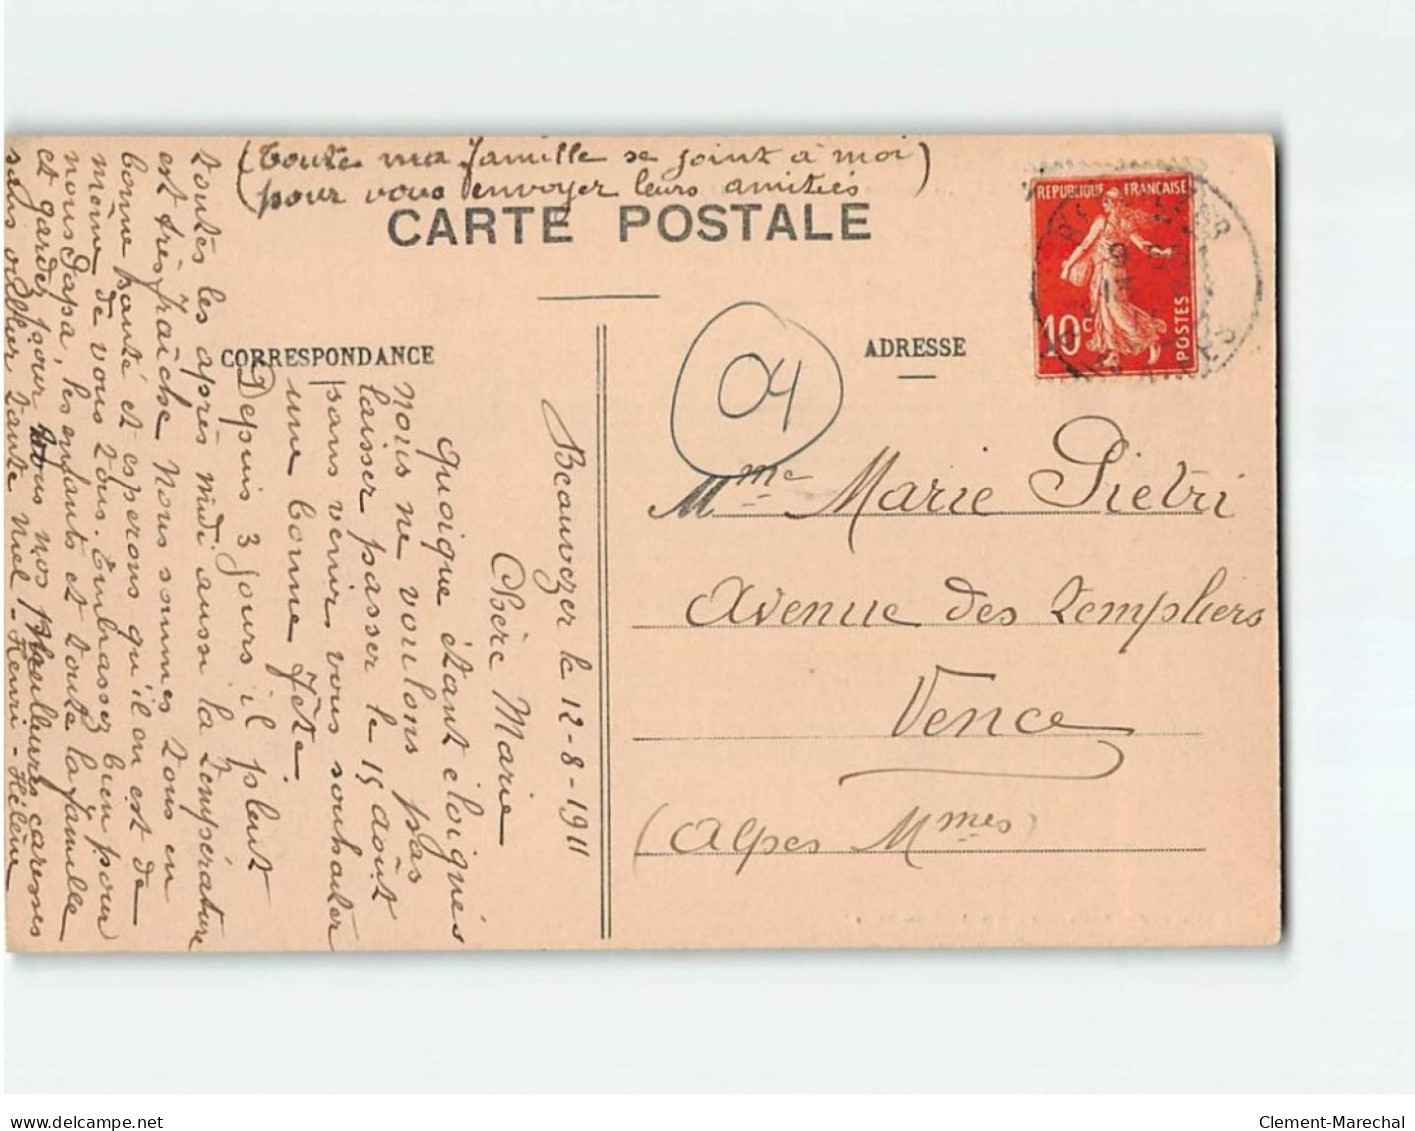 (Toute ma famille se joint à moi)
(pour vous envoyer leurs amitiés)
CARTE POSTALE
CORRESPONDANCE
ADRESSE
REPUBLIQUE FRANÇAISE
10c
POSTES
04
Beauvezer le 12-8-1911
Chère Marie
Quoique étant éloignés
nous ne voulons pas
laisser passer le 15 août
sans venir vous souhaiter
une bonne fête.
Depuis 3 jours il pleut
toutes les après midi aussi la température
est très fraîche Nous sommes tous en
bonne santé et esperons qu'il en est de
même de vous tous. Embrassez bien pour
nous Papa, les enfants et toute la famille
et gardez pour vous nos meilleures caresses
sans oublier tante Mel - Henri - Hélène
Mme Marie Pietri
Avenue des Templiers
Vence
(Alpes Mmes)
delcampe.net
Clement-Marechal